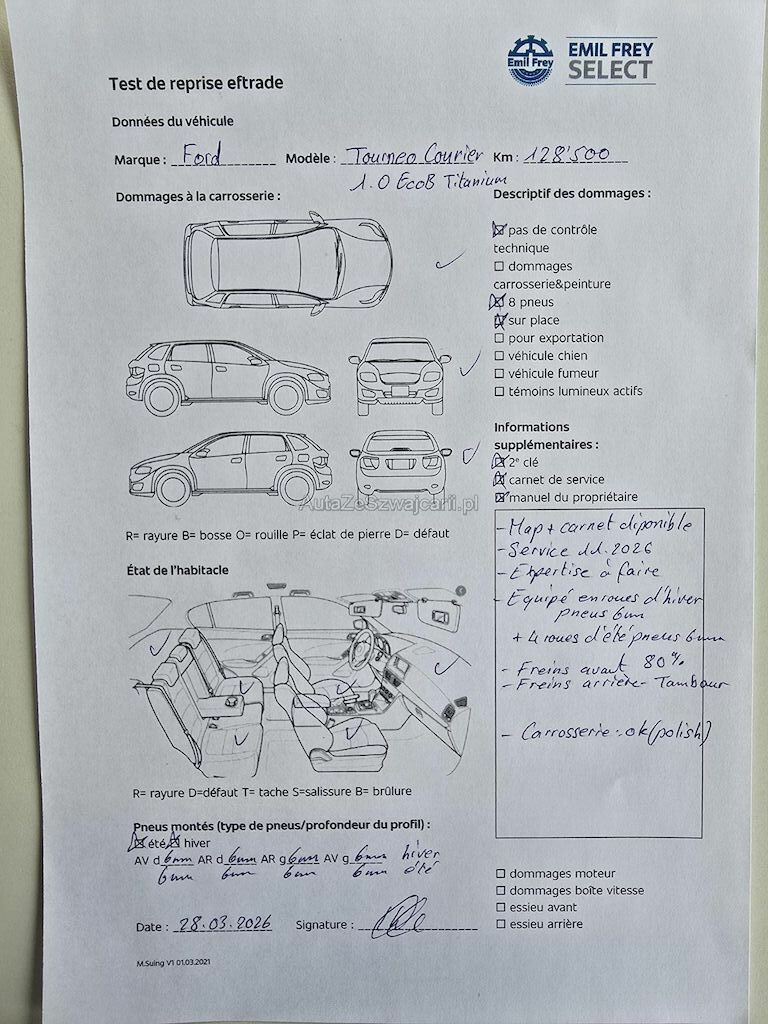 EMIL FREY
SELECT
Emil Frey
Test de reprise eftrade
Données du véhicule
Marque : Ford Modèle : Tourneo Courier Km : 128'500
1.0 EcoB Titanium
Dommages à la carrosserie :
Descriptif des dommages :
pas de contrôle
technique
dommages
carrosserie&peinture
8 pneus
sur place
pour exportation
véhicule chien
véhicule fumeur
témoins lumineux actifs
Informations
supplémentaires :
2e clé
carnet de service
manuel du propriétaire
AutaZeSzwajcarii.pl
R= rayure B= bosse O= rouille P= éclat de pierre D= défaut
- Map + carnet diponible
- Service 11.2026
- Expertise à faire
- Equipé en roues d'hiver
pneus 6mm
+ 4 roues d'été pneus 6mm
- Freins avant 80%
- Freins arrière - Tambour
- Carrosserie : ok (polish)
État de l'habitacle
R= rayure D=défaut T= tache S=salissure B= brûlure
Pneus montés (type de pneus/profondeur du profil) :
été hiver
AV d 6mm AR d 6mm AR g 6mm AV g 6mm hiver
6mm 6mm 6mm 6mm été
dommages moteur
dommages boîte vitesse
essieu avant
essieu arrière
Date : 28.03.2026 Signature :
M.Suing V1 01.03.2021